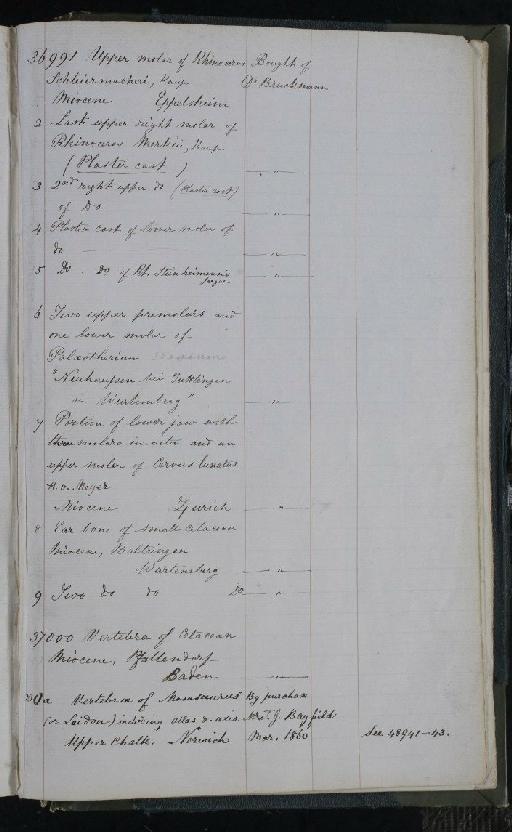 36991 Upper molar of Rhinoceros Bought of
Schleiermacheri, Kaup Dr Bruckmann
Miocene Eppelsheim
2 Last upper right molar of
Rhinoceros Merkii, Kaup
(Plaster cast)
3 2nd right upper do (Plaster cast)
of Do
4 Plaster cast of lower molar of
do
5 Do. Do of Rh. Steinheimensis
Jaeger.
6 Two upper premolars and
one lower molar of
Palæotherium
"Neuhausen bei Tuttlingen
in Würtemberg"
7 Portion of lower jaw with
three molars in situ and an
upper molar of Cervus lunatus
H. v. Meyer
Miocene Zurich
8 Ear bone of small Cetacean
Miocene, Baltringen
Würtemberg
9 Two do do Do
37000 Vertebra of Cetacean
Miocene, Pfullendorf
Baden
Vertebræ of Mosasaurus By purchase
(or Leiodon) including atlas & axis Mr T. G. Bayfield
Upper Chalk. Norwich Mar. 1860 See 48941-43.